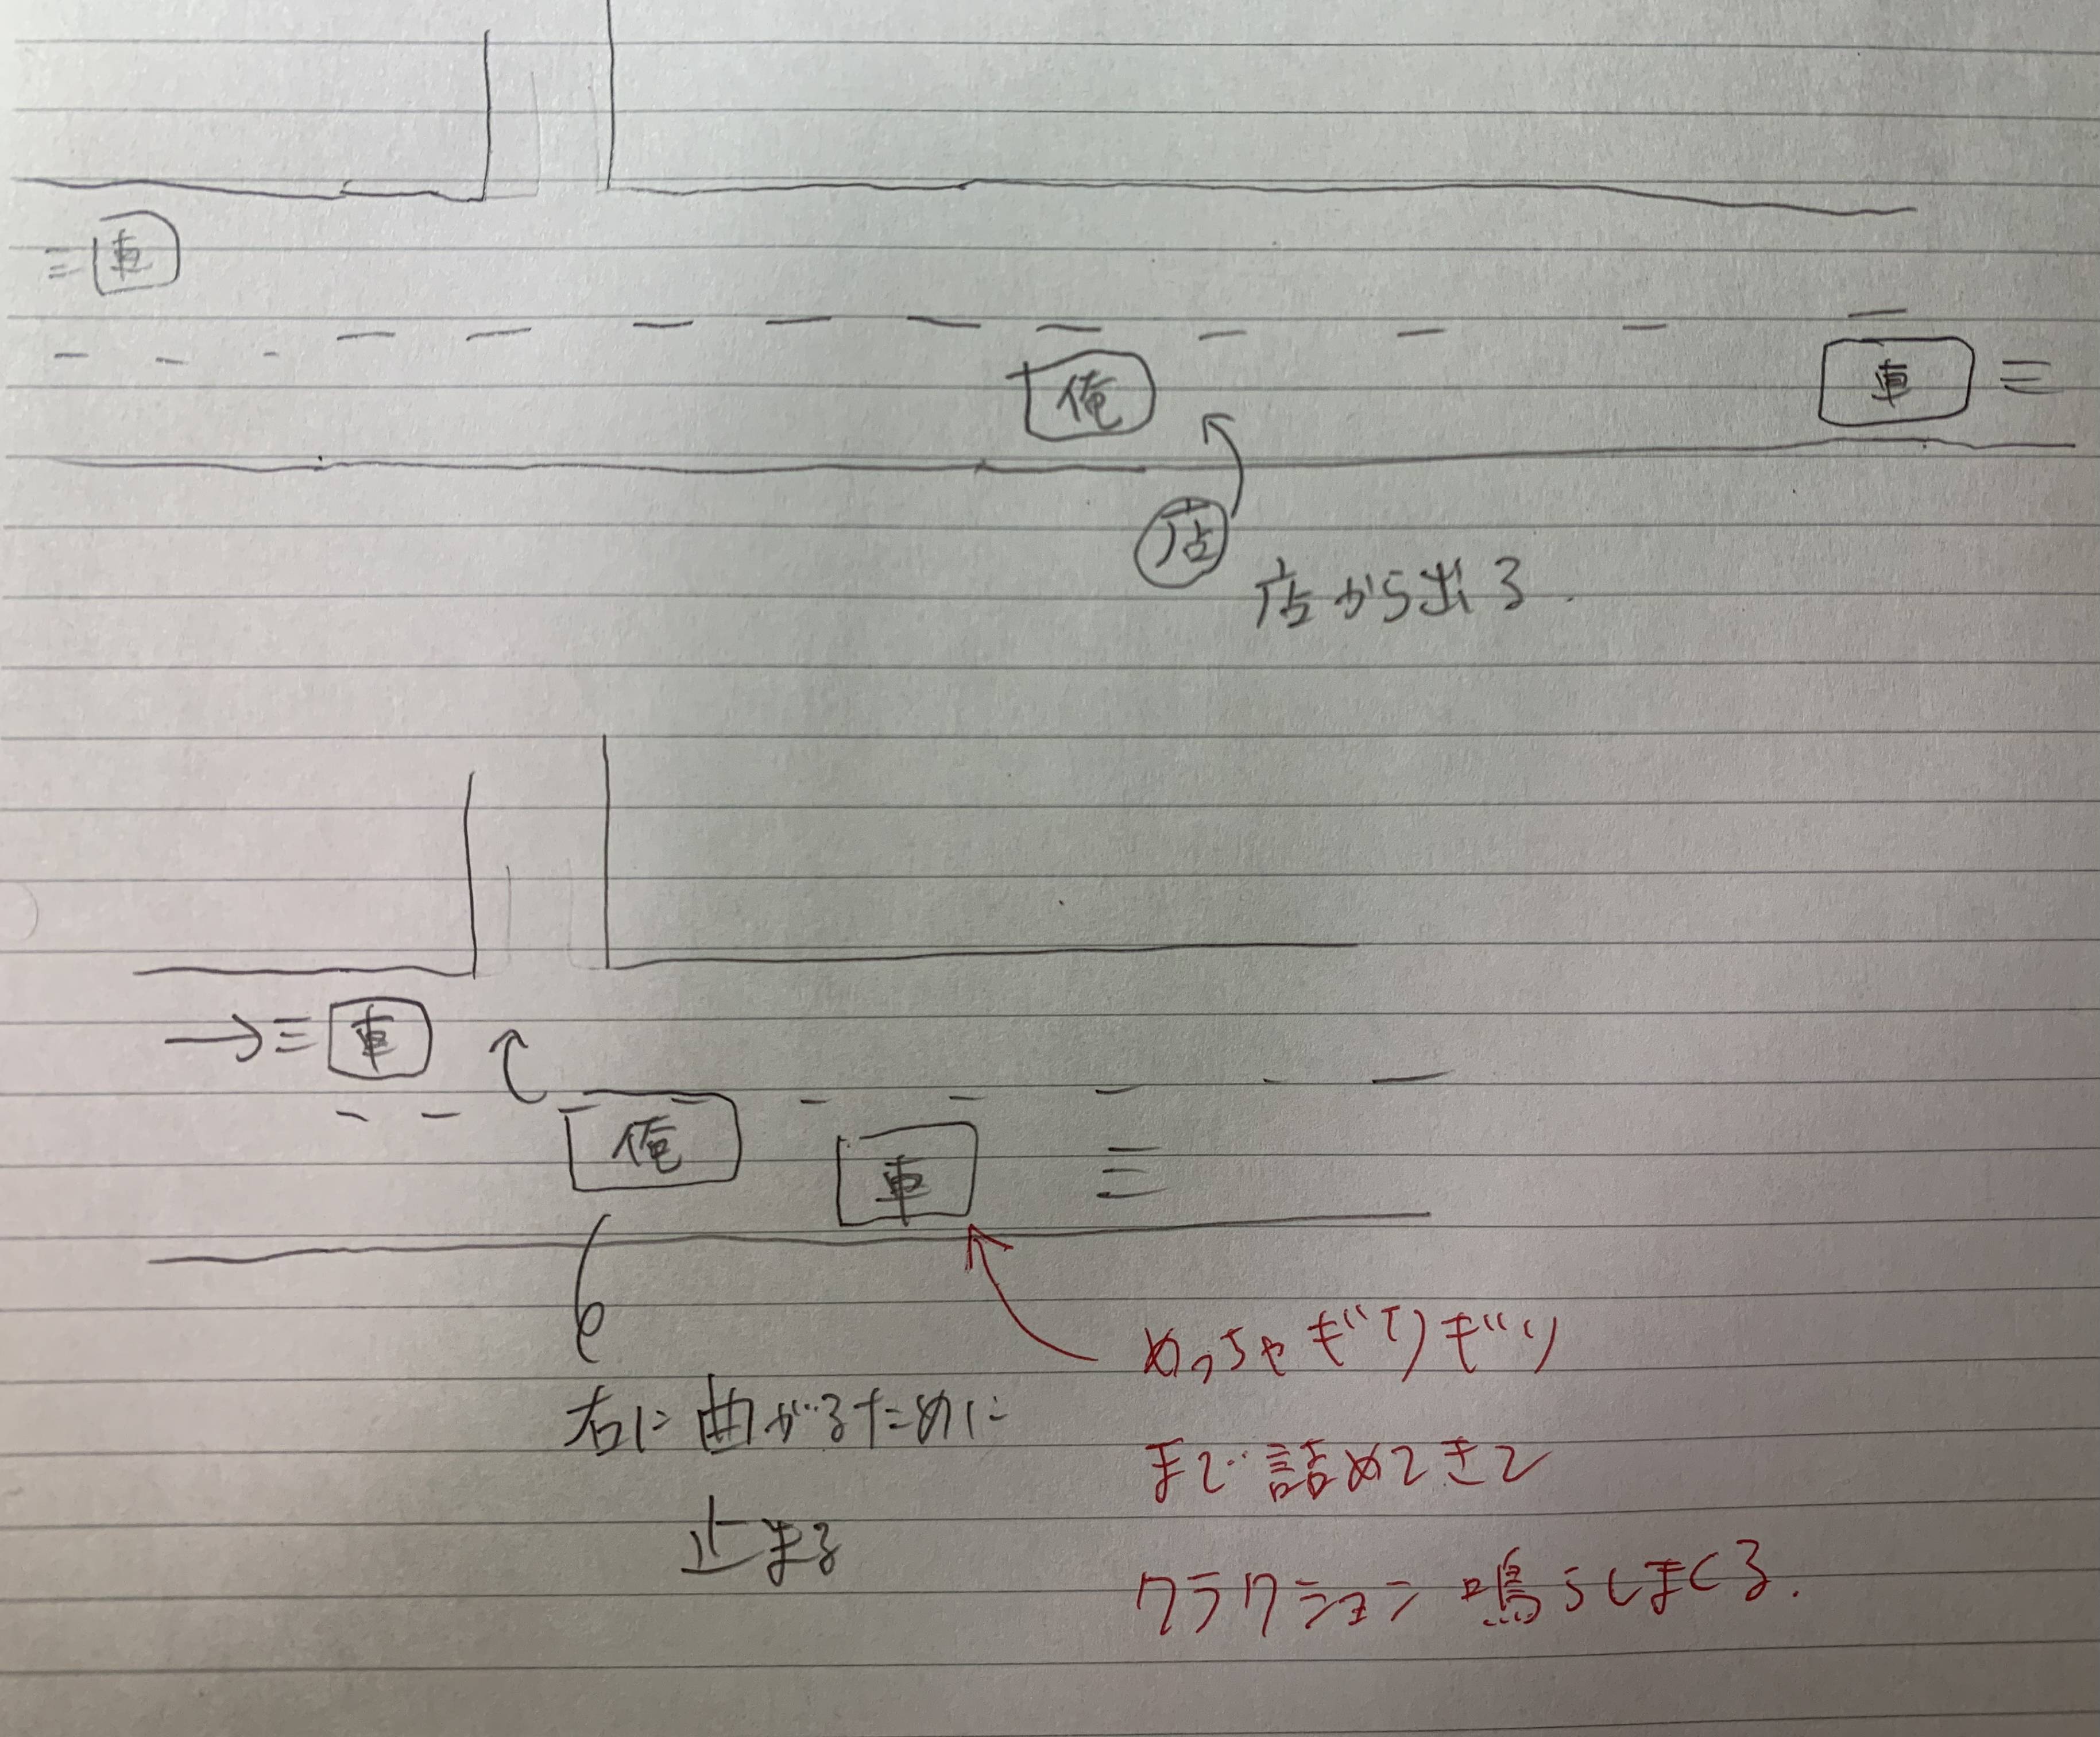 車
俺
車
店
店から出る.
車
俺
車
右に曲がるために
止まる
めっちゃギリギリ
まで詰めてきて
クラクション鳴らしまくる.